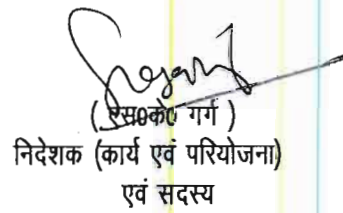 ( एस०के० गर्ग )
निदेशक (कार्य एवं परियोजना)
एवं सदस्य